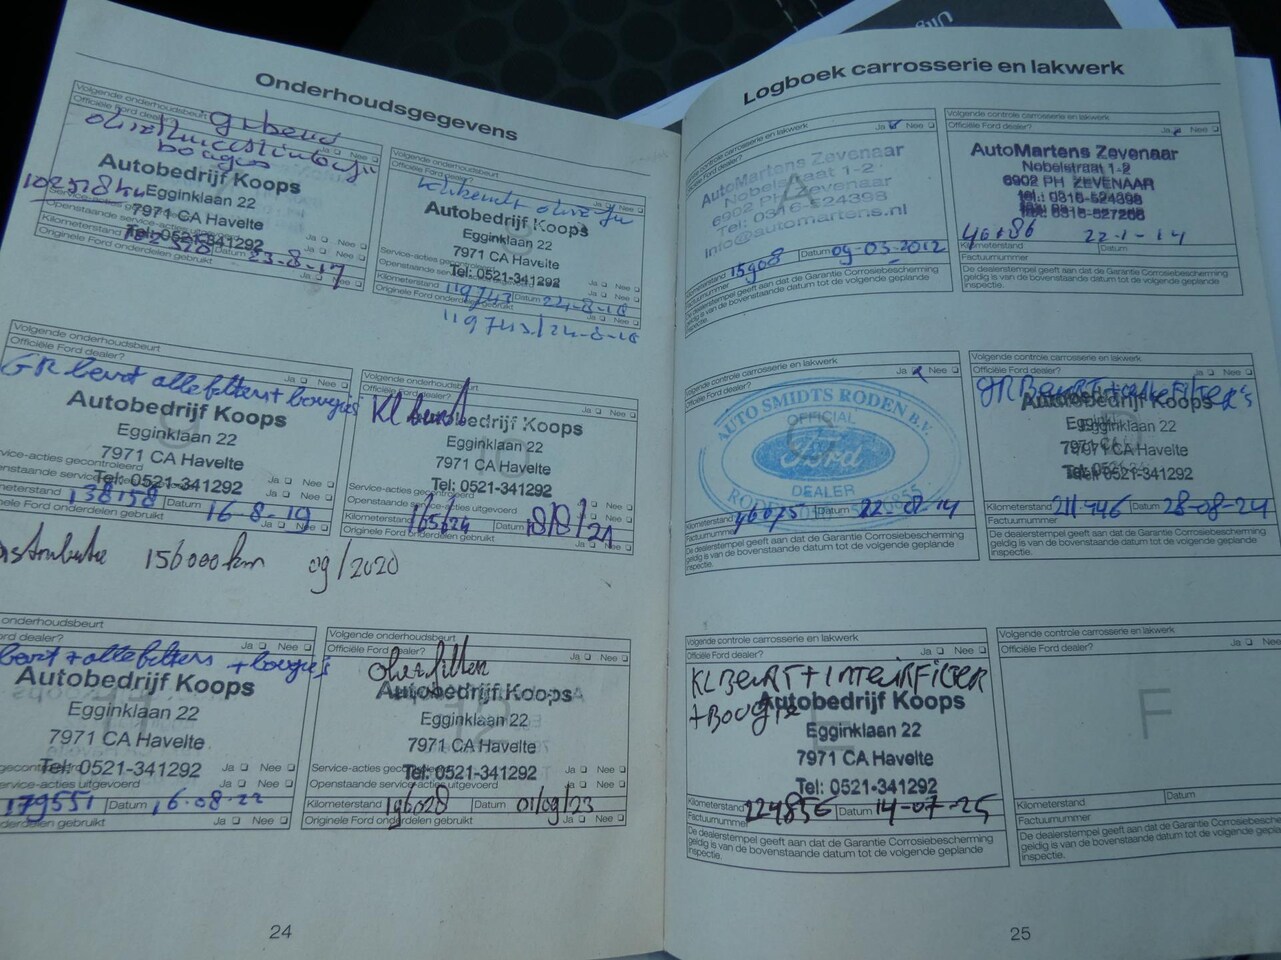 Onderhoudsgegevens
Volgende onderhoudsbeurt
Officiële Ford dealer?
Ja Nee
gr beurt
bougies
Autobedrijf Koops
102518 km
Egginklaan 22
7971 CA Havelte
Tel: 0521-341292
Kilometerstand Datum 23-8-17
Originele Ford onderdelen gebruikt
Ja Nee
Ja Nee
Autobedrijf Koops
Egginklaan 22
7971 CA Havelte
Tel: 0521-341292
Kilometerstand 119743 Datum 24-8-18
Originele Ford onderdelen gebruikt Ja Nee
119743/24-8-18
Volgende onderhoudsbeurt
Officiële Ford dealer?
Ja Nee
GR beurt alle filters + bougies
Autobedrijf Koops
Egginklaan 22
7971 CA Havelte
Service-acties gecontroleerd
Tel: 0521-341292
138158 Datum 16-8-19
onderdelen gebruikt Ja Nee
Volgende onderhoudsbeurt
Ja Nee
KL beurt
Autobedrijf Koops
Egginklaan 22
7971 CA Havelte
Service-acties
Tel: 0521-341292
Openstaande service-acties uitgevoerd
Kilometerstand 165624 Datum 18/8/21
Originele Ford onderdelen gebruikt Ja Nee
156000 km 09/2020
onderhoudsbeurt
dealer?
Ja Nee
beurt + alle filters + bougies
Autobedrijf Koops
Egginklaan 22
7971 CA Havelte
Tel: 0521-341292
Ja Nee
uitgevoerd Ja Nee
179551 Datum 16-08-22
gebruikt Ja Nee
Volgende onderhoudsbeurt
Officiële Ford dealer?
Ja Nee
Olie + filter
Autobedrijf Koops
Egginklaan 22
7971 CA Havelte
Service-acties
Tel: 0521-341292
Ja Nee
Openstaande service-acties uitgevoerd Ja Nee
Kilometerstand 196028 Datum 01/09/23
Originele Ford onderdelen gebruikt Ja Nee
24
Logboek carrosserie en lakwerk
Volgende controle carrosserie en lakwerk
Ja Nee
AutoMartens Zevenaar
Nobelstraat 1-2
6902 PH Zevenaar
Tel: 0316-524398
info@automartens.nl
A
Kilometerstand 15908 Datum 09-03-2012
Factuurnummer
De dealerstempel geeft aan dat de Garantie Corrosiebescherming
geldig is van de bovenstaande datum tot de volgende geplande
inspectie.
Volgende controle carrosserie en lakwerk
Officiële Ford dealer?
Ja Nee
AutoMartens Zevenaar
Nobelstraat 1-2
6902 PH ZEVENAAR
tel.: 0316-524398
0316-527266
22-1-14
Kilometerstand Datum
Factuurnummer
De dealerstempel geeft aan dat de Garantie Corrosiebescherming
geldig is van de bovenstaande datum tot de volgende geplande
inspectie.
Volgende controle carrosserie en lakwerk
Officiële Ford dealer?
Ja Nee
AUTO SMIDTS RODEN B.V.
OFFICIAL
Ford
DEALER
C
Kilometerstand Datum
Factuurnummer
De dealerstempel geeft aan dat de Garantie Corrosiebescherming
geldig is van de bovenstaande datum tot de volgende geplande
inspectie.
Volgende controle carrosserie en lakwerk
Officiële Ford dealer?
Ja Nee
Autobedrijf Koops
Egginklaan 22
7971 CA Havelte
Tel: 0521-341292
Kilometerstand 211446 Datum 28-08-24
Factuurnummer
De dealerstempel geeft aan dat de Garantie Corrosiebescherming
geldig is van de bovenstaande datum tot de volgende geplande
inspectie.
Volgende controle carrosserie en lakwerk
Officiële Ford dealer?
Ja Nee
KL BEURT + INTERIEURFILTER
+ Bougie
Autobedrijf Koops
Egginklaan 22
7971 CA Havelte
Tel: 0521-341292
E
Kilometerstand 224856 Datum 14-07-25
Factuurnummer
De dealerstempel geeft aan dat de Garantie Corrosiebescherming
geldig is van de bovenstaande datum tot de volgende geplande
inspectie.
Volgende controle carrosserie en lakwerk
Officiële Ford dealer?
Ja Nee
F
Kilometerstand Datum
Factuurnummer
De dealerstempel geeft aan dat de Garantie Corrosiebescherming
geldig is van de bovenstaande datum tot de volgende geplande
inspectie.
25